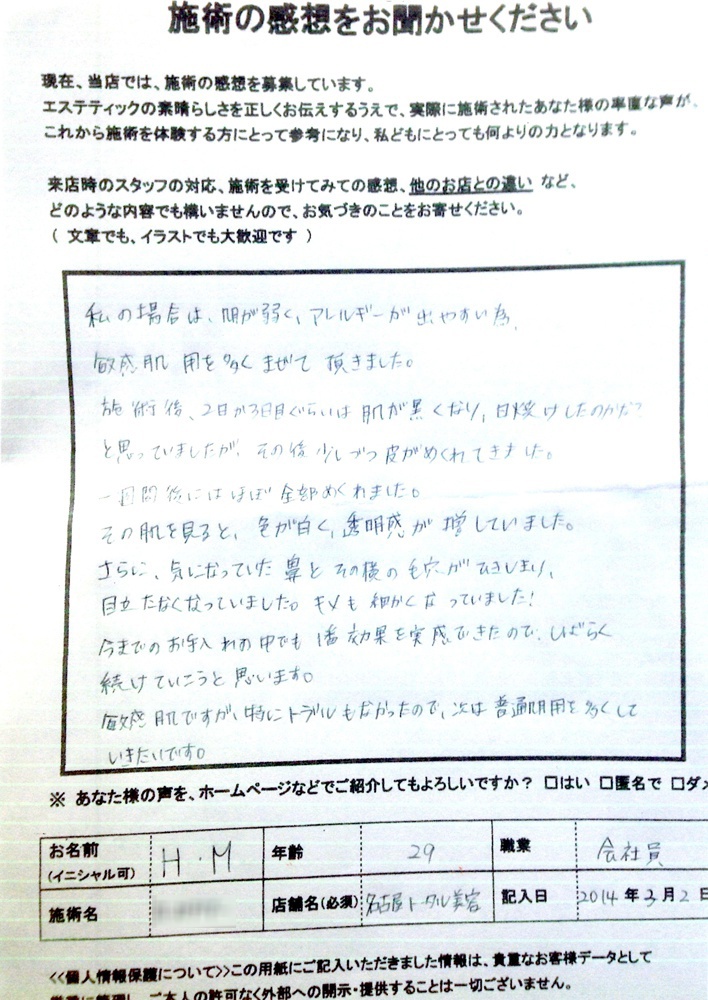 施術の感想をお聞かせください
現在、当店では、施術の感想を募集しています。
エステティックの素晴らしさを正しくお伝えするうえで、実際に施術されたあなた様の率直な声が、
これから施術を体験する方にとって参考になり、私どもにとっても何よりの力となります。
来店時のスタッフの対応、施術を受けてみての感想、他のお店との違い など、
どのような内容でも構いませんので、お気づきのことをお寄せください。
( 文章でも、イラストでも大歓迎です )
私の場合は、肌が弱く、アレルギーが出やすい為、
敏感肌用を多くまぜて頂きました。
施術後、2日か3日目ぐらいは肌が黒くなり、日焼けしたのかな?
と思っていましたが、その後少しづつ皮がめくれてきました。
一週間後にはほぼ全部めくれました。
その肌を見ると、色が白く、透明感が増していました。
さらに、気になっていた鼻とその横の毛穴がひきしまり、
目立たなくなっていました。キメも細かくなっていました!
今までのお手入れの中でも1番効果を実感できたので、しばらく
続けていこうと思います。
敏感肌ですが、特にトラブルもなかったので、次は普通肌用を多くして
いきたいです。
※ あなた様の声を、ホームページなどでご紹介してもよろしいですか? □はい □匿名で □ダメ
お名前 (イニシャル可) H・M 年齢 29 職業 会社員
施術名 店舗名(必須) 名古屋トータル美容 記入日 2014年3月2日
<<個人情報保護について>>この用紙にご記入いただきました情報は、貴重なお客様データとして
厳重に管理し、ご本人の許可なく外部への開示・提供することは一切ございません。